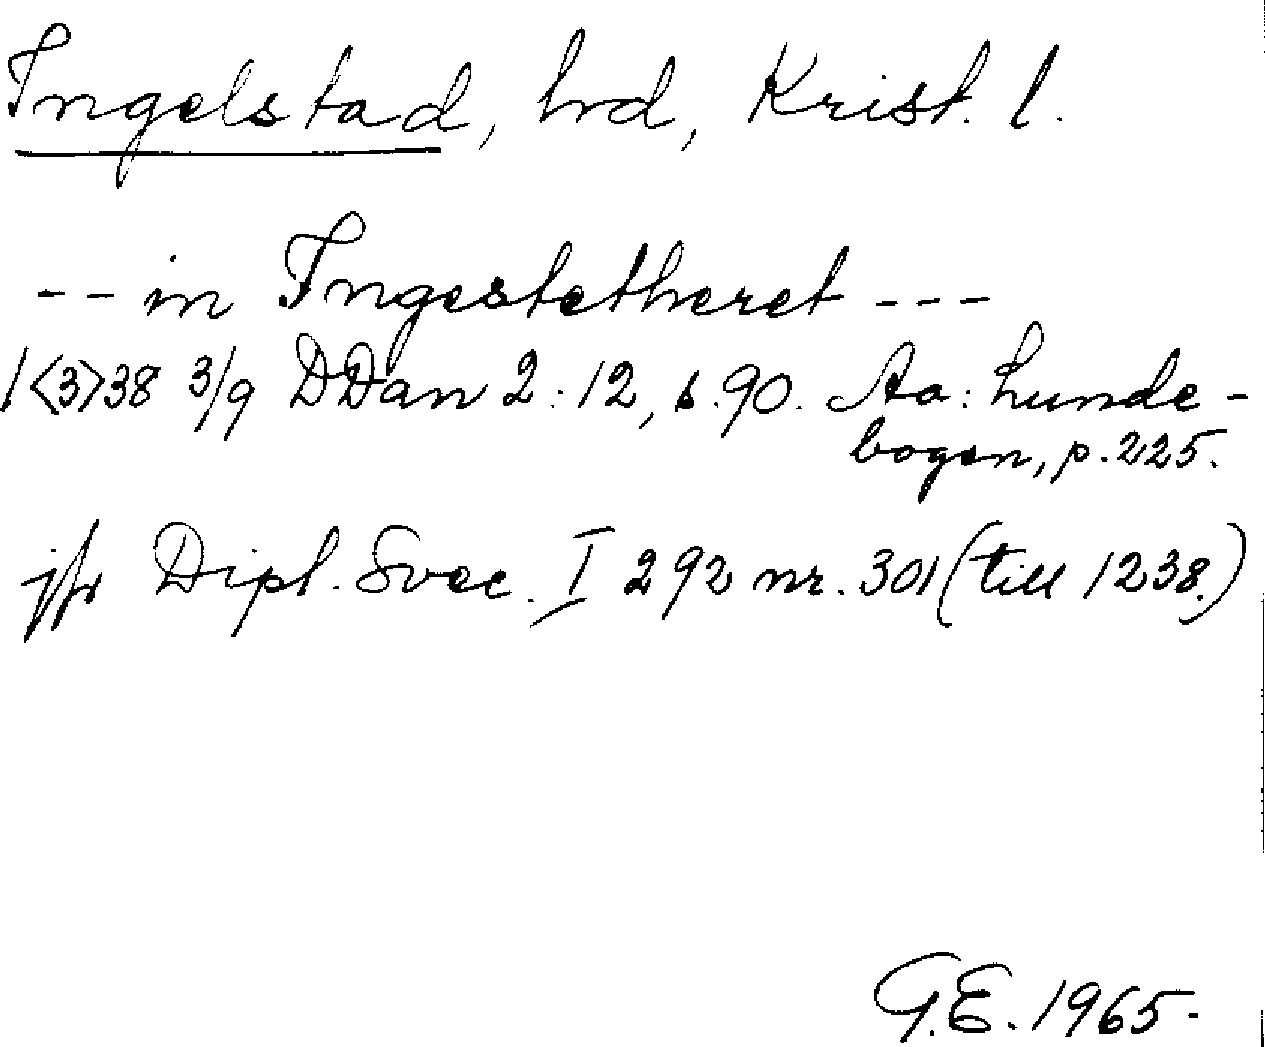 Ingelstad, hrd, Krist. l.
-- in Ingestetheret ---
1<3>38 3/9 DDan 2:12, s.90. Aa: Lunde-
bogen, p. 225.
jfr Dipl. Svec. I 292 nr. 301 (till 1238.)
G.E. 1965.